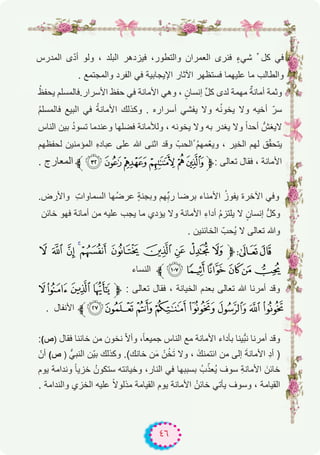 في كل ّ شيءٍ فنرى العمران والتطور، فيزدهر البلد ، ولو أدّى المدرس
والطالب ما عليهما فستظهر الآثار الإيجابية في الفرد والمجتمع .
وثمة أمانةٌ مهمة لدى كلّ إنسانٍ ، وهي الأمانة في حفظ الأسرار.فالمسلم يحفظُ
سرّ أخيه ولا يخونُه ولا يفشي أسراره . وكذلك الأمانةُ في البيع فالمسلمُ
لايغشُّ أحداً ولا يغدر به ولا يخونه ، وللأمانة فضلها وعندما تسودُ بين الناس
يتحقّق لهم الخير ، ويعُمهمُ الحبّ وقد اثنى الله على عباده المؤمنين لحفظهم
الأمانة ، فقال تعالى : ﴿ وَٱلَّذِينَ هُمْ لِأَمَٰنَٰتِهِمْ وَعَهْدِهِمْ رَٰعُونَ ٣٢ ﴾ المعارج .
وفي الآخرة يفوزُ الأمناء برضا ربِّهم وبجنةٍ عرضُها السماواتِ والأرضِ.
وكلُّ إنسانٍ لا يلتزمُ أداءِ الأمانة ولا يؤدي ما يجب عليه من أمانة فهو خائن
والله تعالى لا يُحبّ الخائنين .
قَالَ تَعَالَىٰ: ﴿ وَلَا تُجَٰدِلْ عَنِ ٱلَّذِينَ يَخْتَانُونَ أَنفُسَهُمْ ۚ إِنَّ ٱللَّهَ لَا
يُحِبُّ مَن كَانَ خَوَّانًا أَثِيمًا ١٠٧ ﴾ النساء
وقد أمرنا الله تعالى بعدم الخيانة ، فقال تعالى : ﴿ يَٰٓأَيُّهَا ٱلَّذِينَ ءَامَنُوا۟ لَا
تَخُونُوا۟ ٱللَّهَ وَٱلرَّسُولَ وَتَخُونُوٓا۟ أَمَٰنَٰتِكُمْ وَأَنتُمْ تَعْلَمُونَ ٢٧ ﴾ الأنفال .
وقد أمرنا نبيُّنا بأداء الأمانة مع الناس جميعاً، وألاّ نخون من خاننا فقال (ص):
( أدِ الأمانةَ إلى من ائتمنكَ ، ولا تَخُنْ مَن خانك). وكذلك بيّن النبيُّ ( ص) أنّ
خائن الأمانةِ سوف يُعذّبُ بسببها في النار، وخيانته ستكونُ خزياً وندامة يوم
القيامة ، وسوف يأتي خائنُ الأمانة يوم القيامة مذلولاً عليه الخزي والندامة .
٤٦